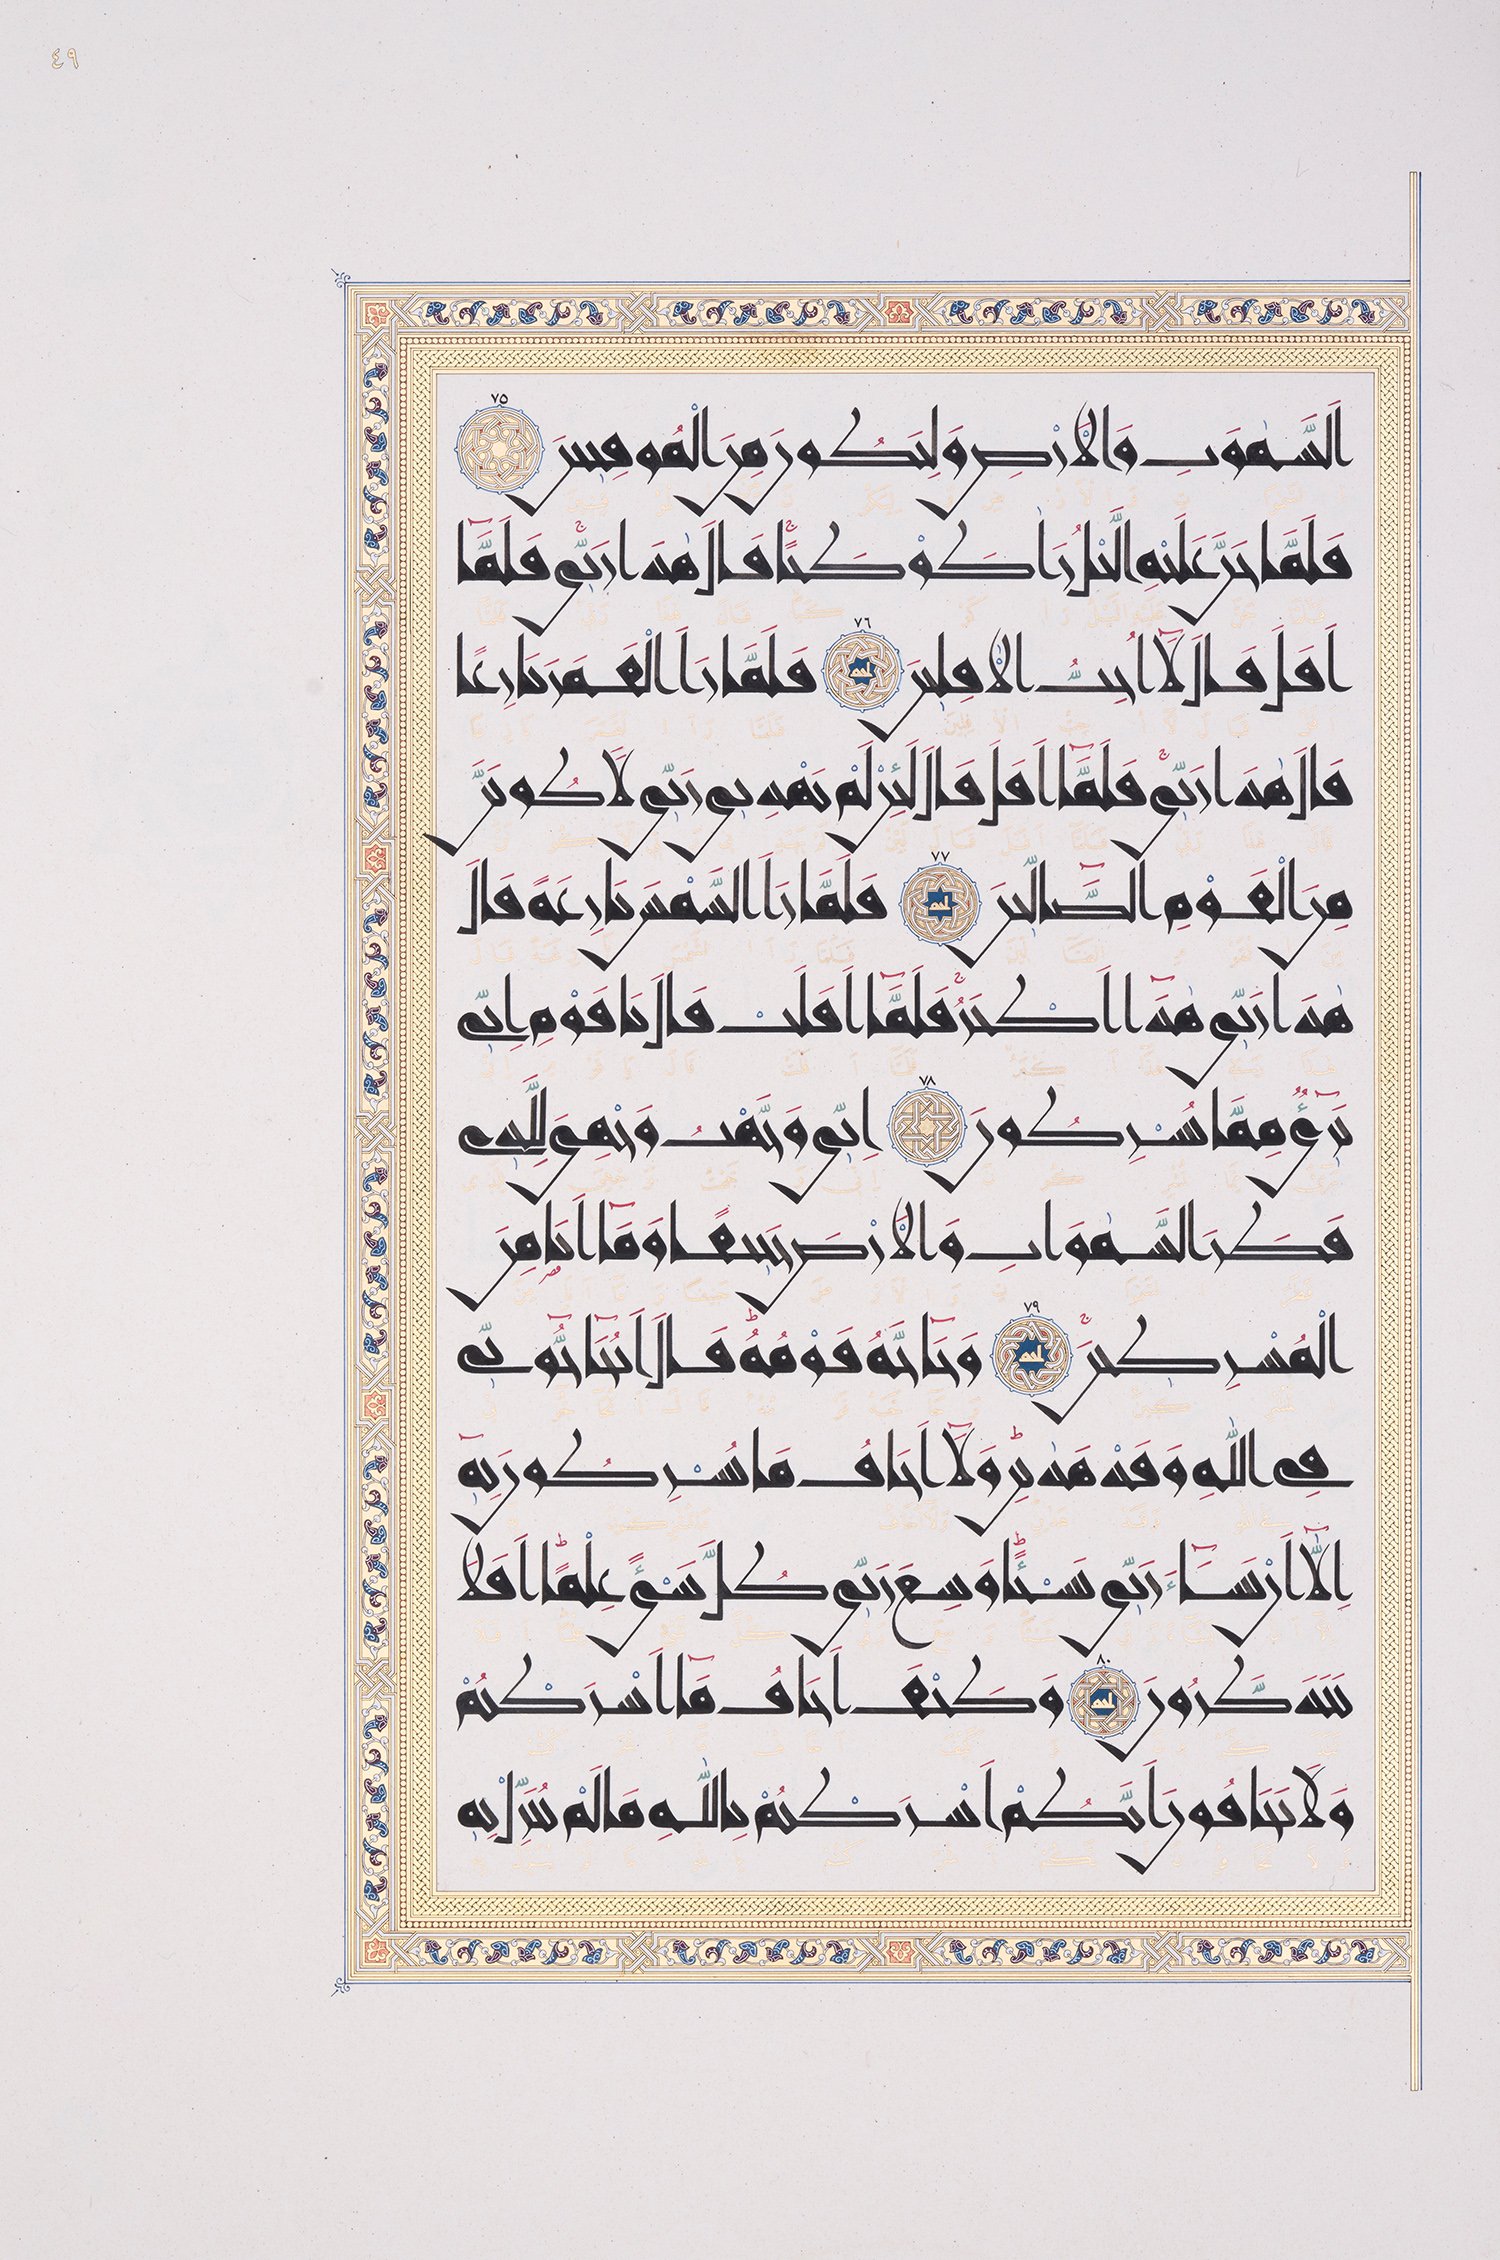 ٤٩
ٱلسَّمَٰوَٰتِ وَٱلْأَرْضِ وَلِيَكُونَ مِنَ ٱلْمُوقِنِينَ ٧٥
فَلَمَّا جَنَّ عَلَيْهِ ٱلَّيْلُ رَءَا كَوْكَبًا قَالَ هَٰذَا رَبِّي فَلَمَّآ
أَفَلَ قَالَ لَآ أُحِبُّ ٱلْءَافِلِينَ ٧٦ فَلَمَّا رَءَا ٱلْقَمَرَ بَازِغًا
قَالَ هَٰذَا رَبِّي فَلَمَّآ أَفَلَ قَالَ لَئِن لَّمْ يَهْدِنِي رَبِّي لَأَكُونَنَّ
مِنَ ٱلْقَوْمِ ٱلضَّآلِّينَ ٧٧ فَلَمَّا رَءَا ٱلشَّمْسَ بَازِغَةً قَالَ
هَٰذَا رَبِّي هَٰذَآ أَكْبَرُ فَلَمَّآ أَفَلَتْ قَالَ يَا قَوْمِ إِنِّي
بَرِيٓءٌ مِّمَّا تُشْرِكُونَ ٧٨ إِنِّي وَجَّهْتُ وَجْهِيَ لِلَّذِي
فَطَرَ ٱلسَّمَٰوَاتِ وَٱلْأَرْضَ حَنِيفًا وَمَآ أَنَا مِنَ
ٱلْمُشْرِكِينَ ٧٩ وَحَآجَّهُ قَوْمُهُ قَالَ أَتُحَآجُّونِّي
فِي ٱللَّهِ وَقَدْ هَدَٰنِ وَلَآ أَخَافُ مَا تُشْرِكُونَ بِهِٓ
إِلَّآ أَن يَشَآءَ رَبِّي شَيْئًا وَسِعَ رَبِّي كُلَّ شَيْءٍ عِلْمًا أَفَلَا
تَتَذَكَّرُونَ ٨٠ وَكَيْفَ أَخَافُ مَآ أَشْرَكْتُمْ
وَلَا تَخَافُونَ أَنَّكُمْ أَشْرَكْتُمْ بِٱللَّهِ مَا لَمْ يُنَزِّلْ بِهِ